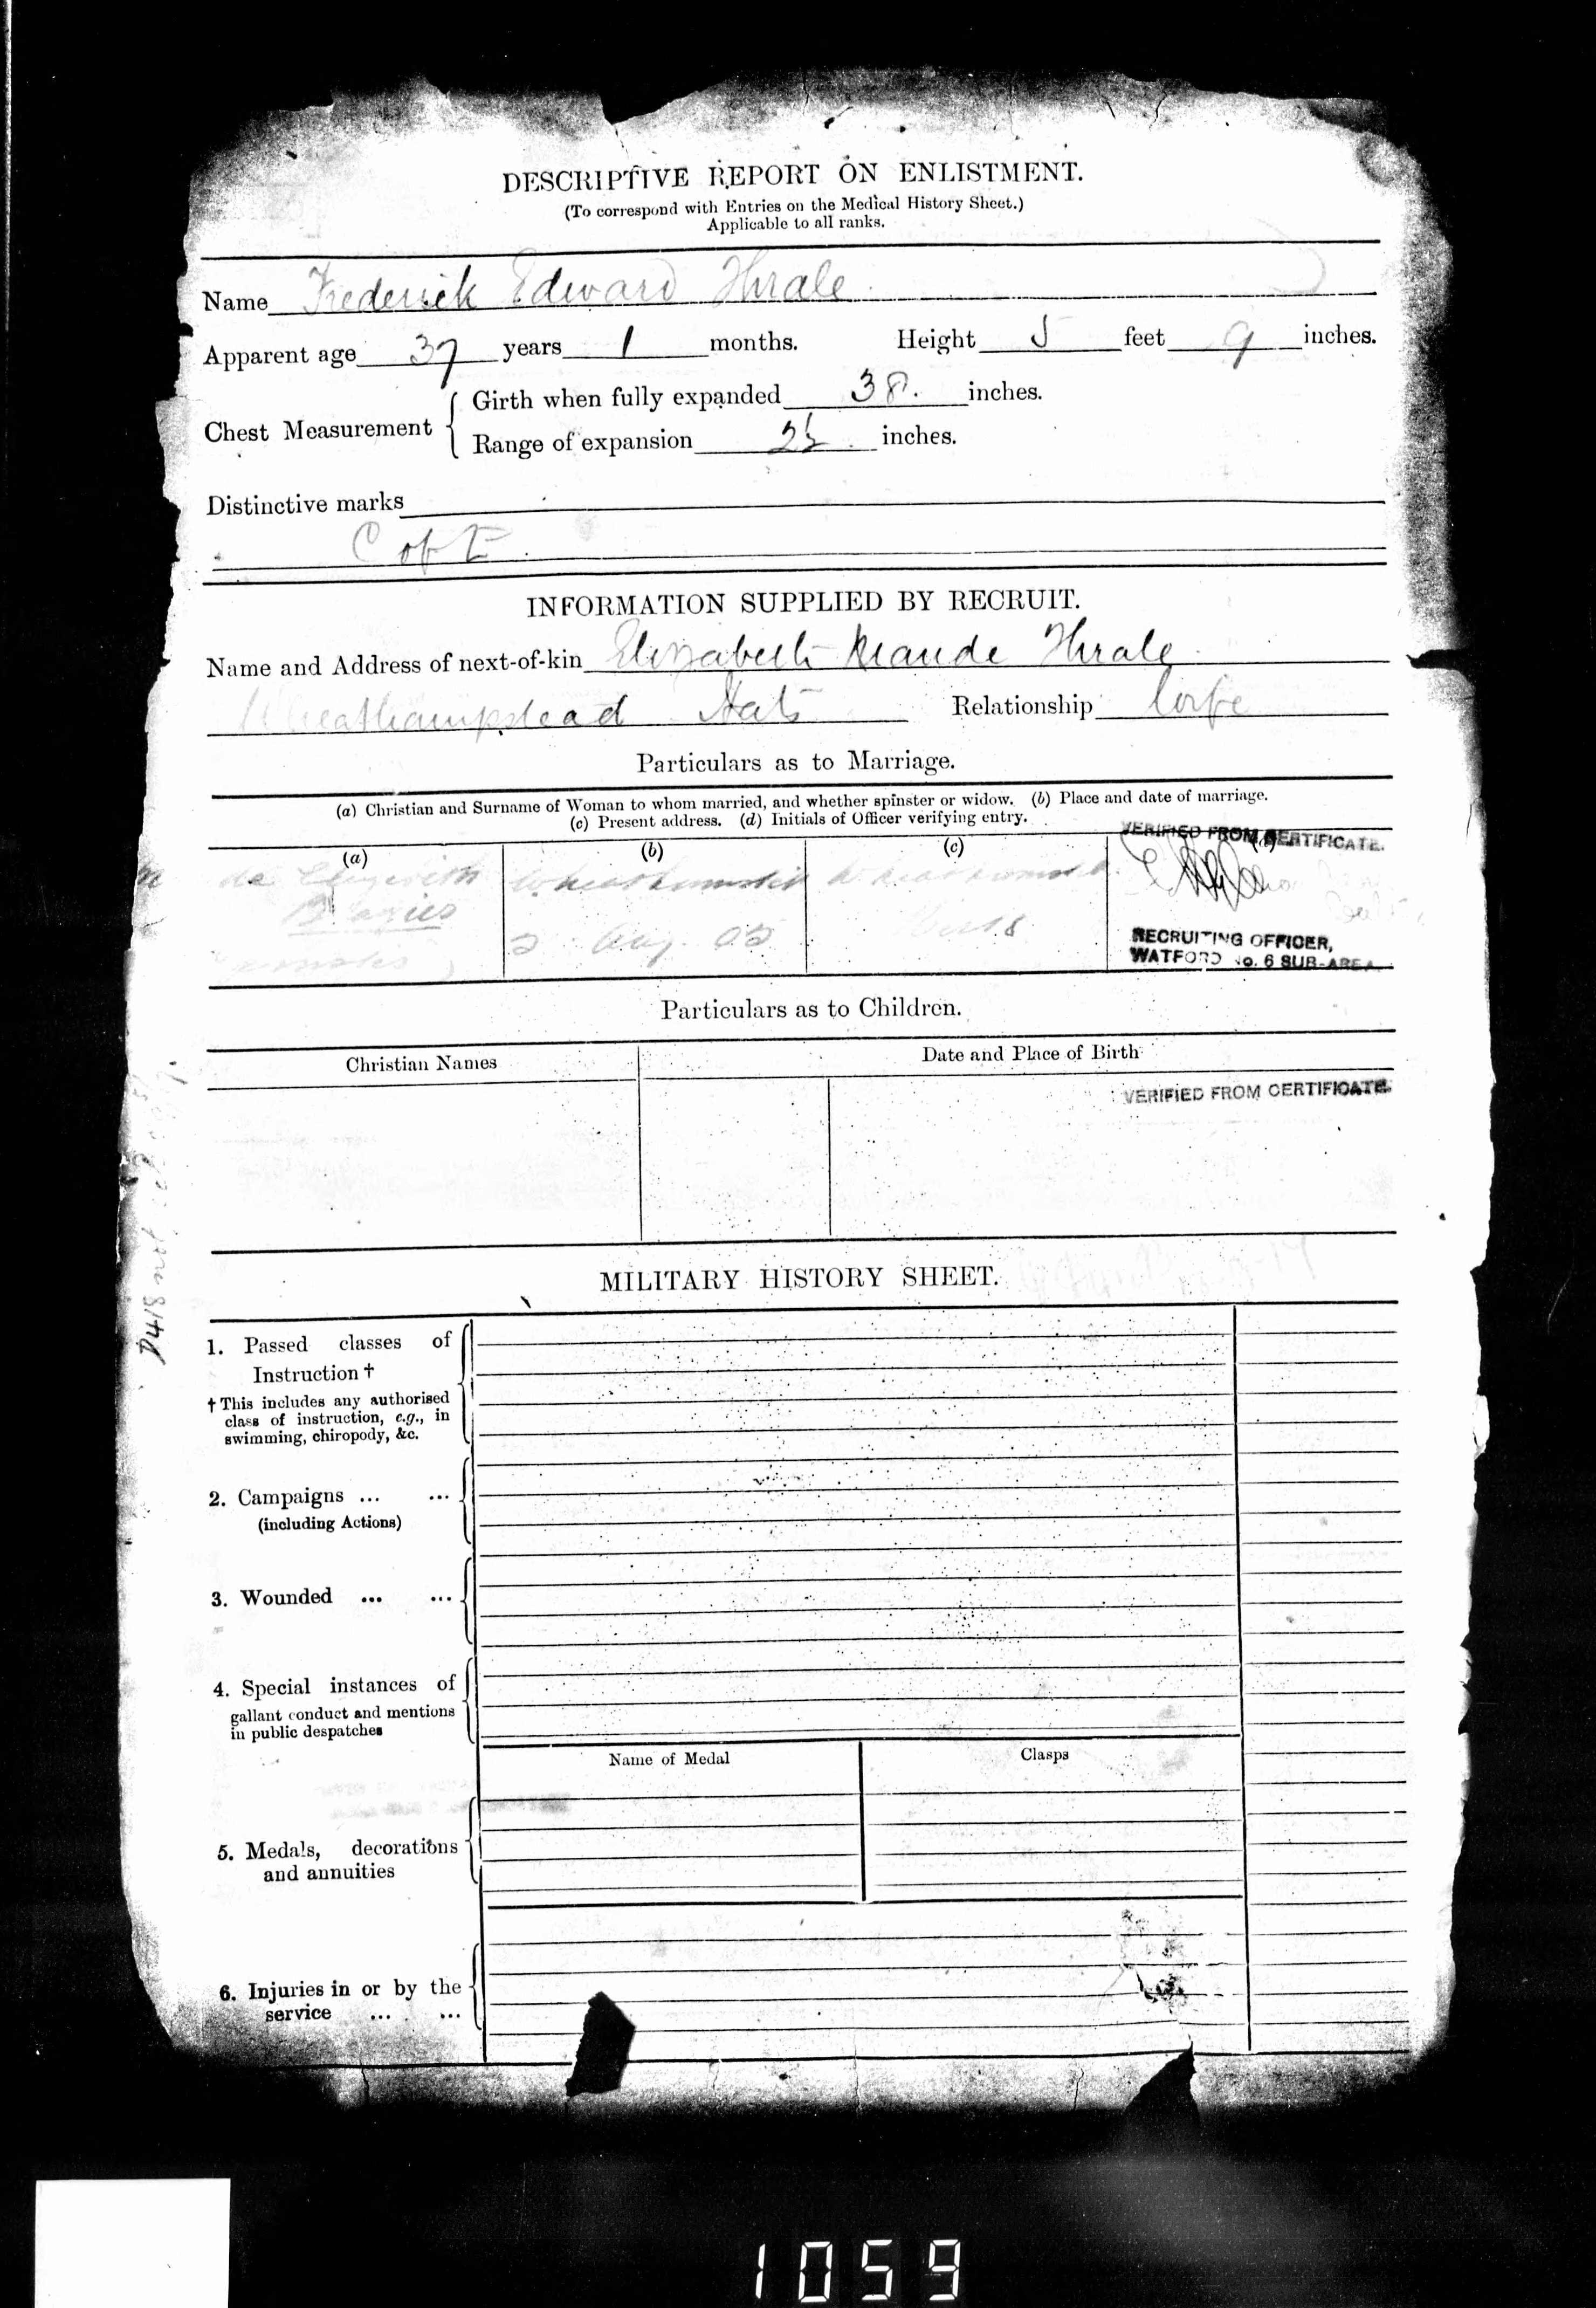 DESCRIPTIVE REPORT ON ENLISTMENT.
(To correspond with Entries on the Medical History Sheet.)
Applicable to all ranks.
Name Frederick Edward Thrale
Apparent age 37 years 1 months. Height 5 feet 9 inches.
Chest Measurement
Girth when fully expanded 38. inches.
Range of expansion 2½ inches.
Distinctive marks
C of E
INFORMATION SUPPLIED BY RECRUIT.
Name and Address of next-of-kin Elizabeth Maude Thrale
Wheathampstead Herts Relationship Wife
Particulars as to Marriage.
(a) Christian and Surname of Woman to whom married, and whether spinster or widow. (b) Place and date of marriage.
(c) Present address. (d) Initials of Officer verifying entry.
VERIFIED FROM CERTIFICATE.
(a) (b) (c)
Aug. 05
Herts
RECRUITING OFFICER,
WATFORD No. 6 SUB-AREA
Particulars as to Children.
Christian Names Date and Place of Birth
VERIFIED FROM CERTIFICATE.
D418 not
MILITARY HISTORY SHEET.
1. Passed classes of
Instruction †
† This includes any authorised
class of instruction, e.g., in
swimming, chiropody, &c.
2. Campaigns ... ...
(including Actions)
3. Wounded ... ...
4. Special instances of
gallant conduct and mentions
in public despatches
Name of Medal Clasps
5. Medals, decorations
and annuities
6. Injuries in or by the
service ... ...
1059